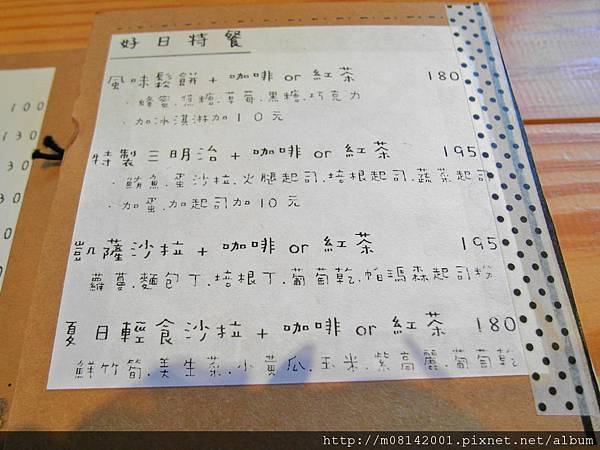 好日特餐
風味鬆餅 + 咖啡 or 紅茶 180
·蜂蜜.焦糖.草莓.黑糖.巧克力
·加冰淇淋加10元
特製三明治 + 咖啡 or 紅茶 195
·鮪魚.蛋沙拉.火腿起司.培根起司.蔬菜起司
·加蛋.加起司加10元
凱薩沙拉 + 咖啡 or 紅茶 195
蘿蔓.麵包丁.培根丁.葡萄乾.帕瑪森起司粉
夏日輕食沙拉 + 咖啡 or 紅茶 180
鮮竹筍.美生菜.小黃瓜.玉米.紫高麗.葡萄乾
100
130
30
30
0
0
http://m08142001.pixnet.net/album